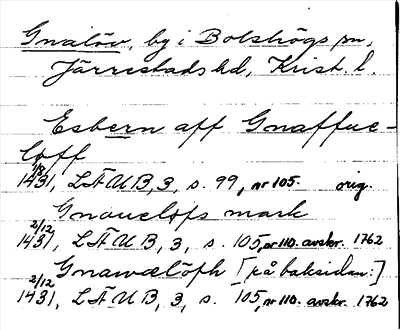 Gnalöv, by i Bolshögs sn,
Järrestads hd, Krist. l.
Esbern aff Gnaffue-
loff
1/8 1431, LÄUB, 3, s. 99, nr 105. orig.
Gnauelofs mark
2/12 1431, LÄUB, 3, s. 105, nr 110. avskr. 1762
Gnawælöfh [på baksidan:]
2/12 1431, LÄUB, 3, s. 105, nr 110. avskr. 1762